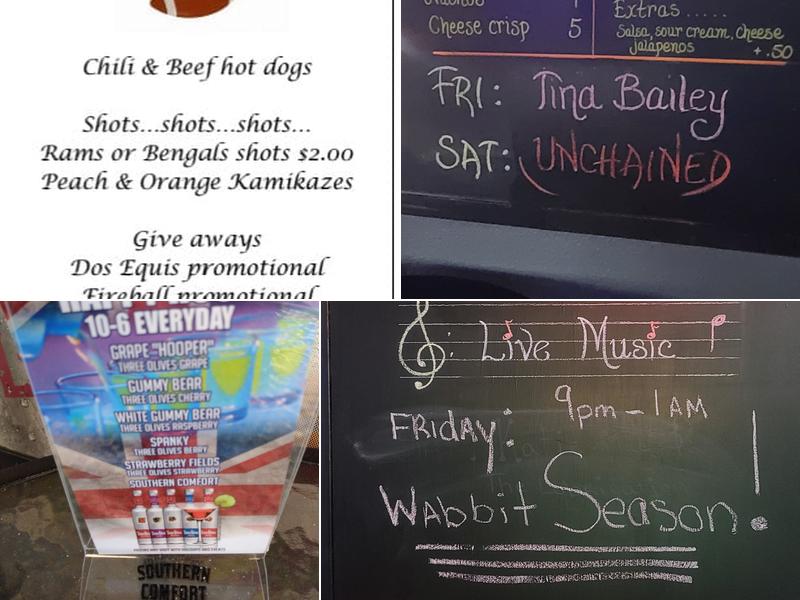 Chili & Beef hot dogs
Shots...shots...shots...
Rams or Bengals shots $2.00
Peach & Orange Kamikazes
Give aways
Dos Equis promotional
Fireball promotional
Nachos
Cheese crisp 5
Extras.....
Salsa, sour cream, cheese
jalapenos +.50
FRI: Tina Bailey
SAT: UNCHAINED
10-6 EVERYDAY
GRAPE "HOOPER"
THREE OLIVES GRAPE
GUMMY BEAR
THREE OLIVES CHERRY
WHITE GUMMY BEAR
THREE OLIVES RASPBERRY
SPANKY
THREE OLIVES BERRY
STRAWBERRY FIELDS
THREE OLIVES STRAWBERRY
SOUTHERN COMFORT
SOUTHERN
COMFORT
: Live Music
9pm - 1AM
FRIDAY:
Wabbit Season!